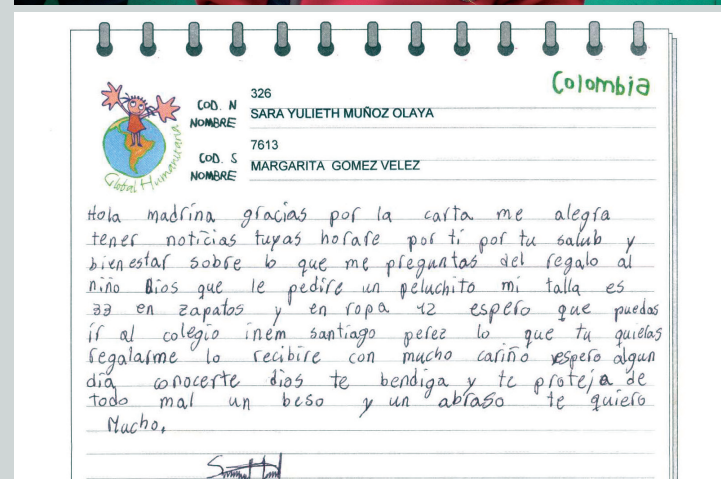 Colombia
326
COD. N
NOMBRE SARA YULIETH MUÑOZ OLAYA
7613
COD. S
NOMBRE MARGARITA GOMEZ VELEZ
Global Humanitaria
Hola madrina gracias por la carta me alegra
tener noticias tuyas horare por ti por tu salub y
bienestar sobre lo que me preguntas del regalo al
niño Dios que le pedire un peluchito mi talla es
33 en zapatos y en ropa 12 espero que puedas
ir al colegio inem santiago perez lo que tu quieras
regalarme lo recibire con mucho cariño espero algun
dia conocerte dios te bendiga y te proteja de
todo mal un beso y un abraso te quiero
Mucho.